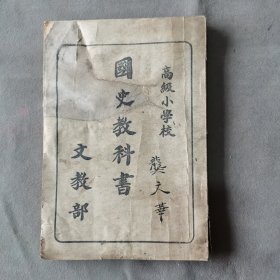 高級小學校
國史教科書
文教部
龔天華